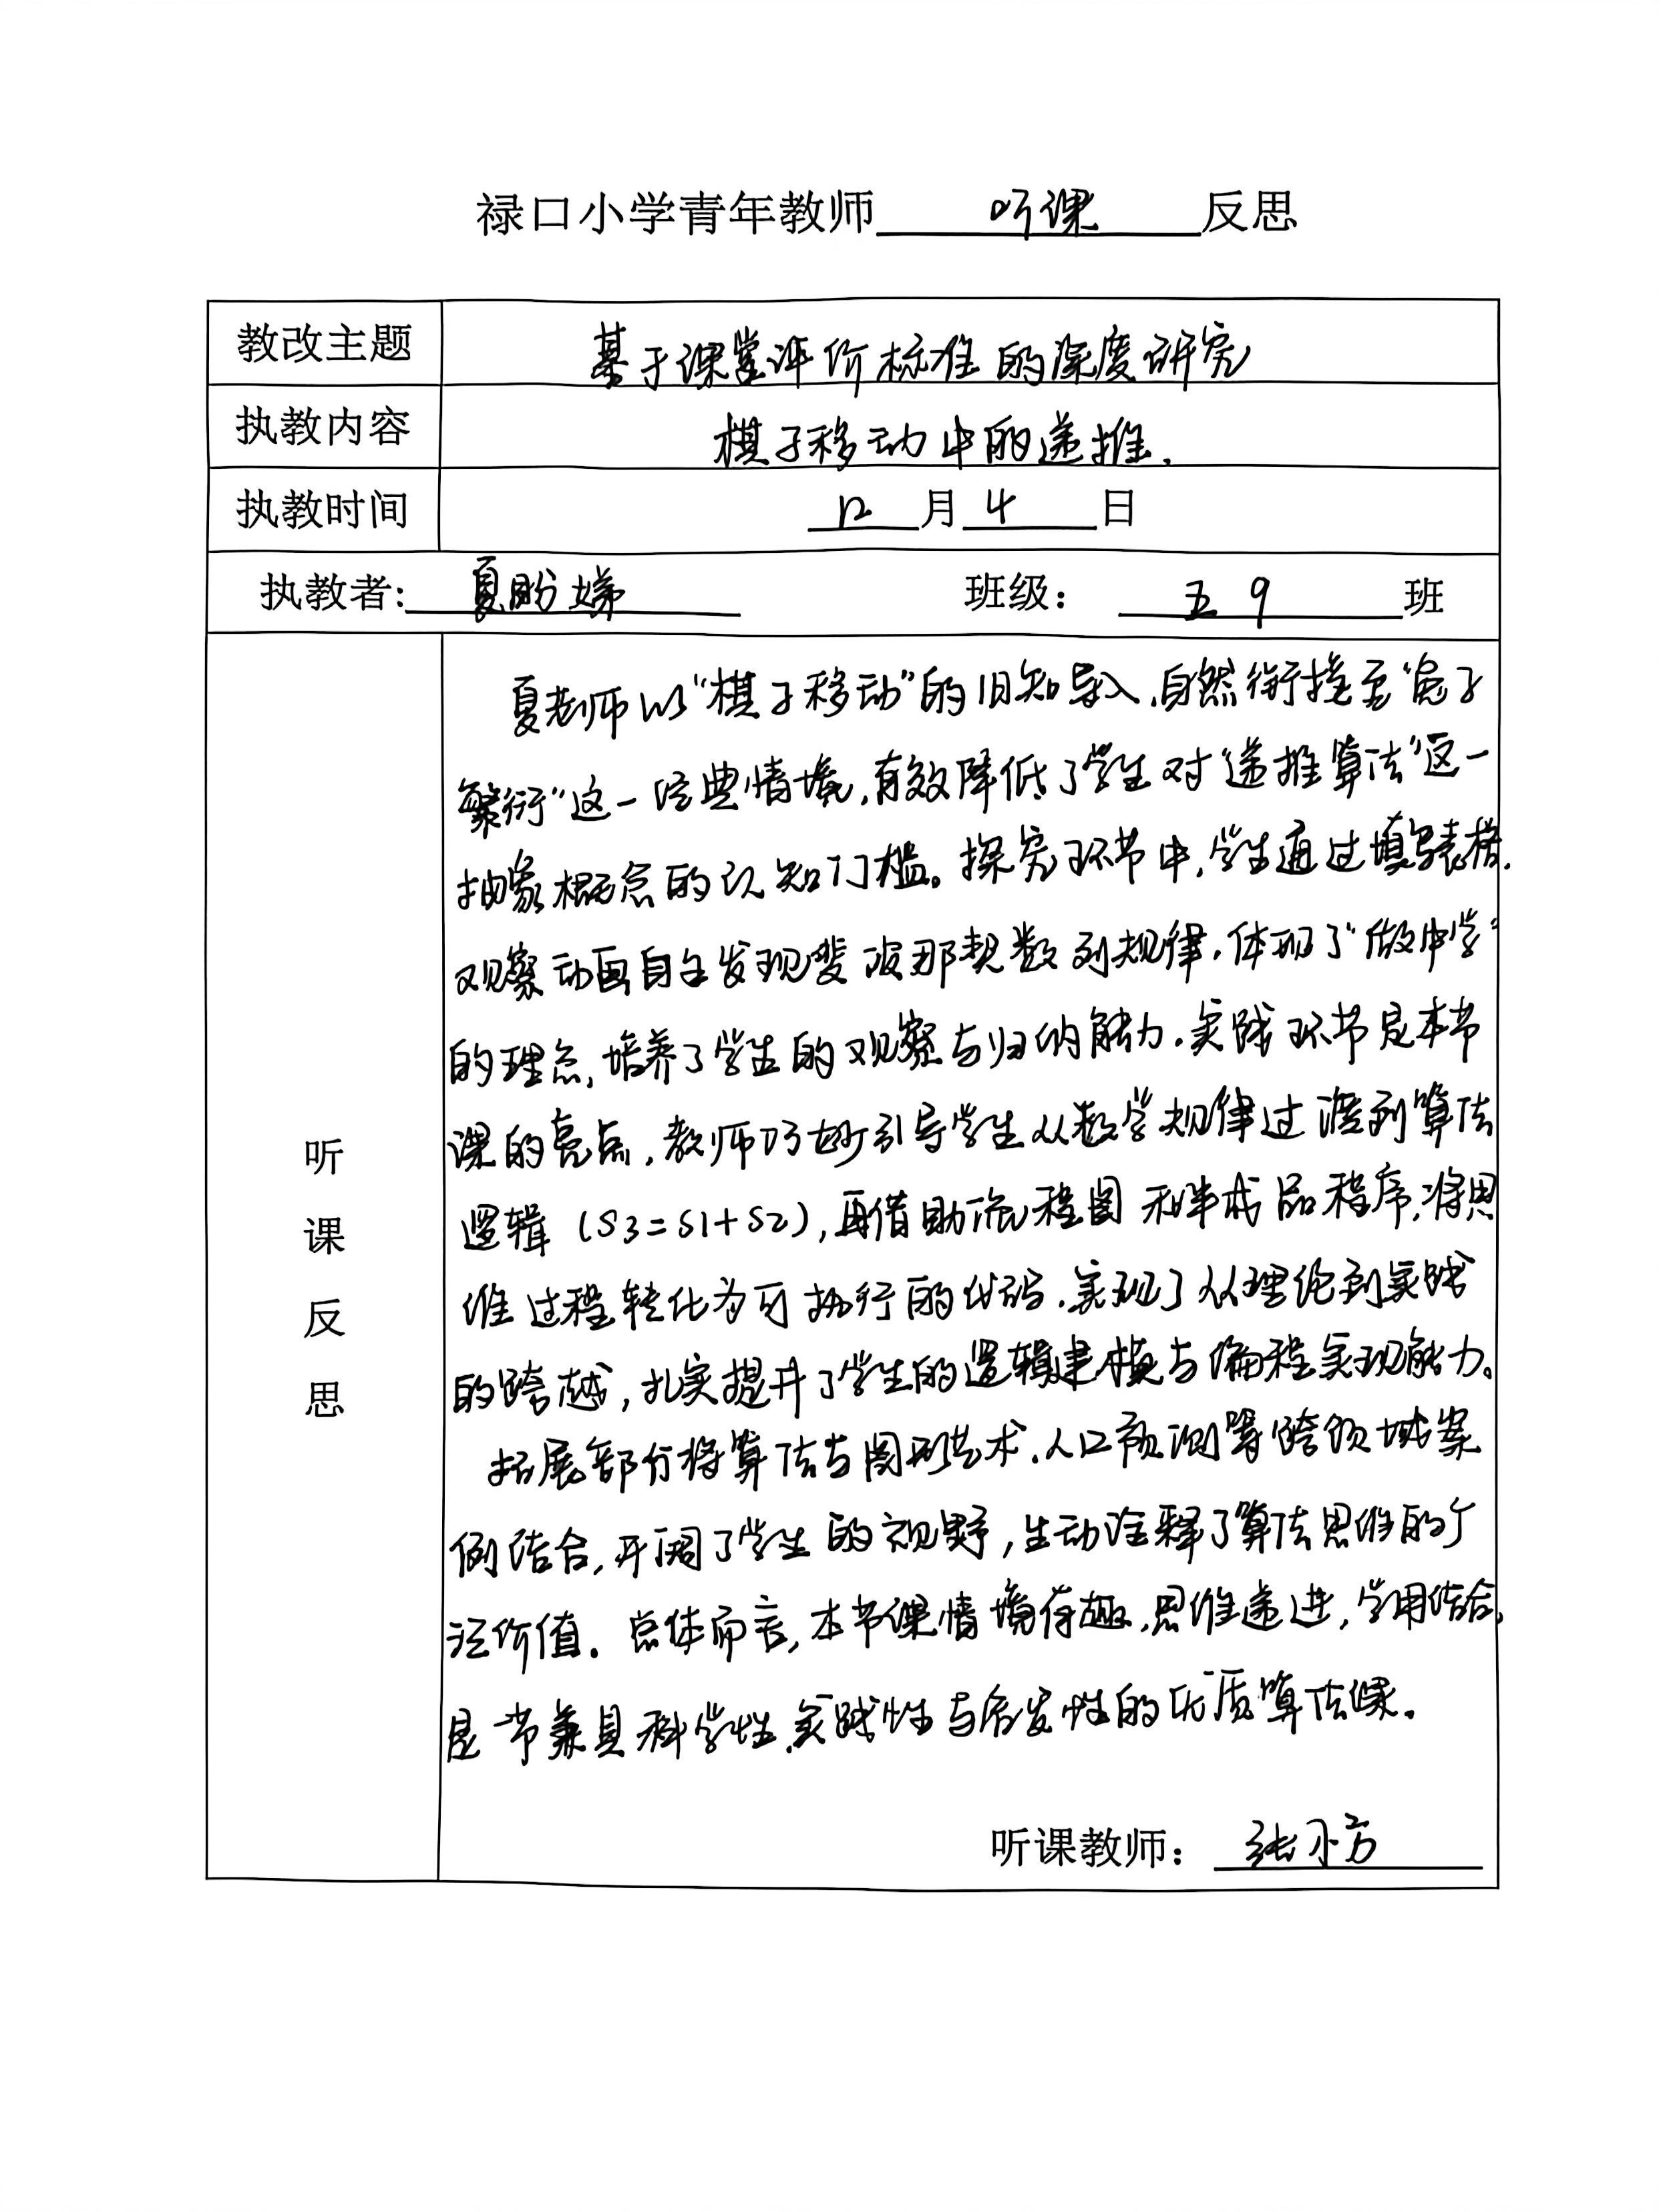 禄口小学青年教师 听课 反思
教改主题 基于课堂评价标准的深度研究
执教内容 棋子移动中的递推.
执教时间 12月4日
执教者: 夏盼娣 班级: 五9班
听课反思
夏老师以“棋子移动”的旧知导入,自然衔接至“兔子
繁衍”这一经典情境,有效降低了学生对“递推算法”这一
抽象概念的认知门槛。探究环节中,学生通过填写表格、
观察动画自主发现斐波那契数列规律,体现了“做中学”
的理念,培养了学生的观察与归纳能力.实践环节是本节
课的亮点,教师巧妙引导学生从数学规律过渡到算法
逻辑(S3=S1+S2),再借助流程图和半成品程序,将思
维过程转化为可执行的代码.实现了从理论到实践
的跨越,扎实提升了学生的逻辑建模与编程实现能力。
拓展部分将算法与图形艺术、人口预测等跨领域案
例结合,开阔了学生的视野,生动诠释了算法思维的广
泛价值.总体而言,本节课情境有趣,思维递进,学用结合,
是节兼具科学性、实践性与启发性的优质算法课.
听课教师: 张小方